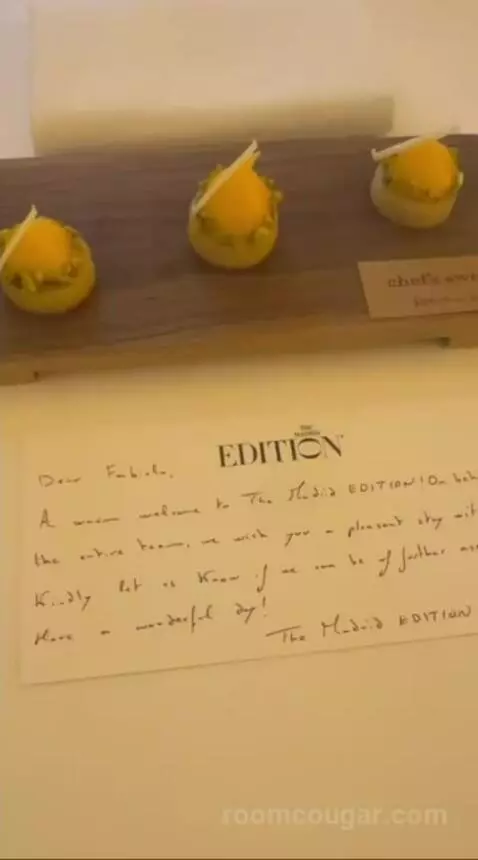 chef's
THE MADRID
EDITION
Dear Fabiola,
A warm welcome to The Madrid EDITION! On
the entire team, we wish you a pleasant stay
Kindly let us know if we can be of further
Have a wonderful day!
The Madrid EDITION
roomcougar.com